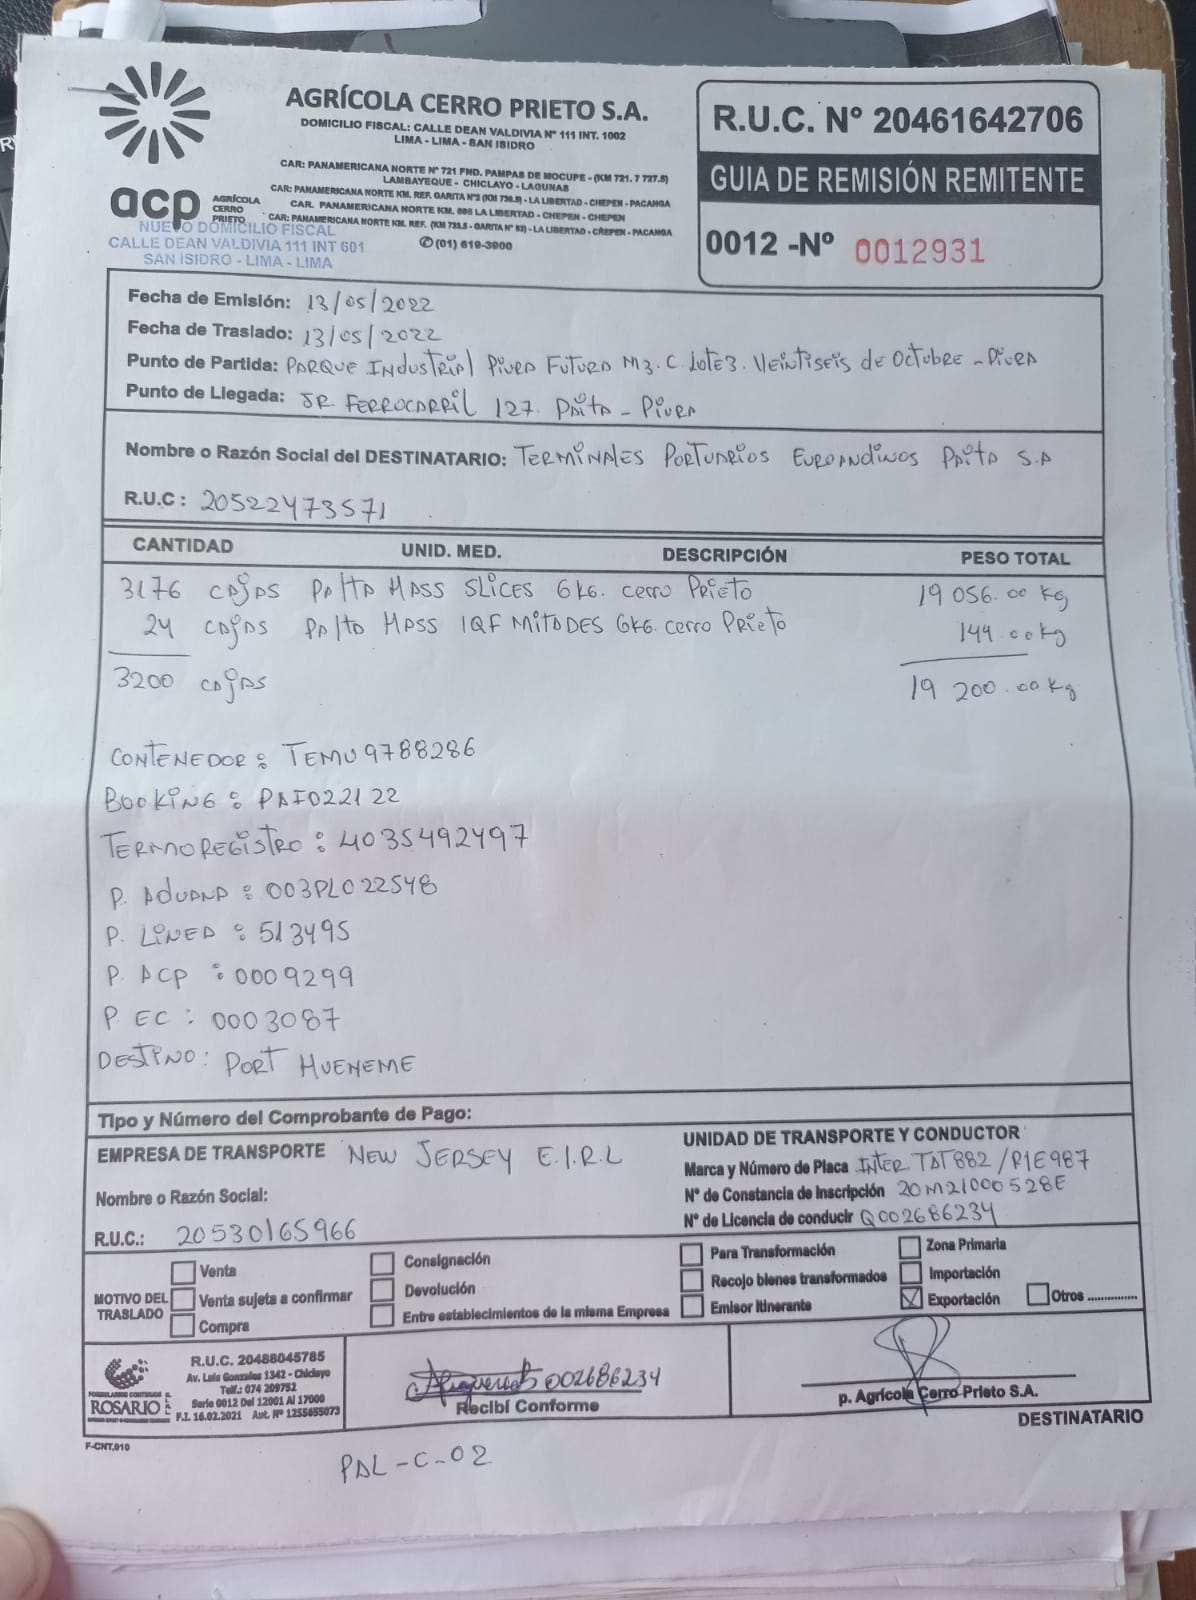 AGRÍCOLA CERRO PRIETO S.A.
DOMICILIO FISCAL: CALLE DEAN VALDIVIA Nº 111 INT. 1002
LIMA - LIMA - SAN ISIDRO
CAR: PANAMERICANA NORTE Nº 721 FND. PAMPAS DE MOCUPE - (KM 721. 7 727.5)
LAMBAYEQUE - CHICLAYO - LAGUNAS
CAR: PANAMERICANA NORTE KM. REF. GARITA Nº2 (KM 736.5) - LA LIBERTAD - CHEPEN - PACANGA
CAR. PANAMERICANA NORTE KM. 695 LA LIBERTAD - CHEPEN - CHEPEN
CAR: PANAMERICANA NORTE KM. REF. (KM 733.5 - GARITA Nº 83) - LA LIBERTAD - CHEPEN - PACANGA
(01) 619-3900
acp AGRÍCOLA CERRO PRIETO
NUEVO DOMICILIO FISCAL
CALLE DEAN VALDIVIA 111 INT 601
SAN ISIDRO - LIMA - LIMA
R.U.C. Nº 20461642706
GUIA DE REMISIÓN REMITENTE
0012 -Nº 0012931
Fecha de Emisión: 13/05/2022
Fecha de Traslado: 13/05/2022
Punto de Partida: PARQUE INDUSTRIAL PIURA FUTURA MZ. C. LOTE 3. VEINTISEIS de OCTUBRE - PIURA
Punto de Llegada: JR. FERROCARRIL 127. PAITA - PIURA
Nombre o Razón Social del DESTINATARIO: TERMINALES PORTUARIOS EUROANDINOS PAITA S.A
R.U.C : 20522473571
CANTIDAD UNID. MED. DESCRIPCIÓN PESO TOTAL
3176 CAJAS PALTA HASS SLICES 6KG. CERRO PRIETO 19 056.00 Kg
24 CAJAS PALTA HASS IQF MITADES 6KG. CERRO PRIETO 144.00 Kg
3200 CAJAS 19 200.00 Kg
CONTENEDOR : TEMU 9788286
BOOKING : PAI022122
TERMOREGISTRO : 4035492497
P. ADUANA : 003PL022548
P. LINEA : 513495
P. ACP : 0009299
P. EC : 0003087
DESTINO : PORT HUENEME
Tipo y Número del Comprobante de Pago:
EMPRESA DE TRANSPORTE NEW JERSEY E.I.R.L
Nombre o Razón Social:
R.U.C.: 20530165966
UNIDAD DE TRANSPORTE Y CONDUCTOR
Marca y Número de Placa INTER. TAT882 / P1E987
Nº de Constancia de Inscripción 20M21000528E
Nº de Licencia de conducir Q002686234
MOTIVO DEL TRASLADO
Venta
Venta sujeta a confirmar
Compra
Consignación
Devolución
Entre establecimientos de la misma Empresa
Para Transformación
Recojo bienes transformados
Emisor Itinerante
Zona Primaria
Importación
Exportación
Otros ..............
ROSARIO
R.U.C. 20488045785
Av. Luis Gonzales 1342 - Chiclayo
Telf.: 074 209752
Serie 0012 Del 12001 Al 17000
F.I. 16.02.2021 Aut. Nº 1255655073
002686234
Recibí Conforme
p. Agrícola Cerro Prieto S.A.
DESTINATARIO
F-CNT.010
PAL-C-02